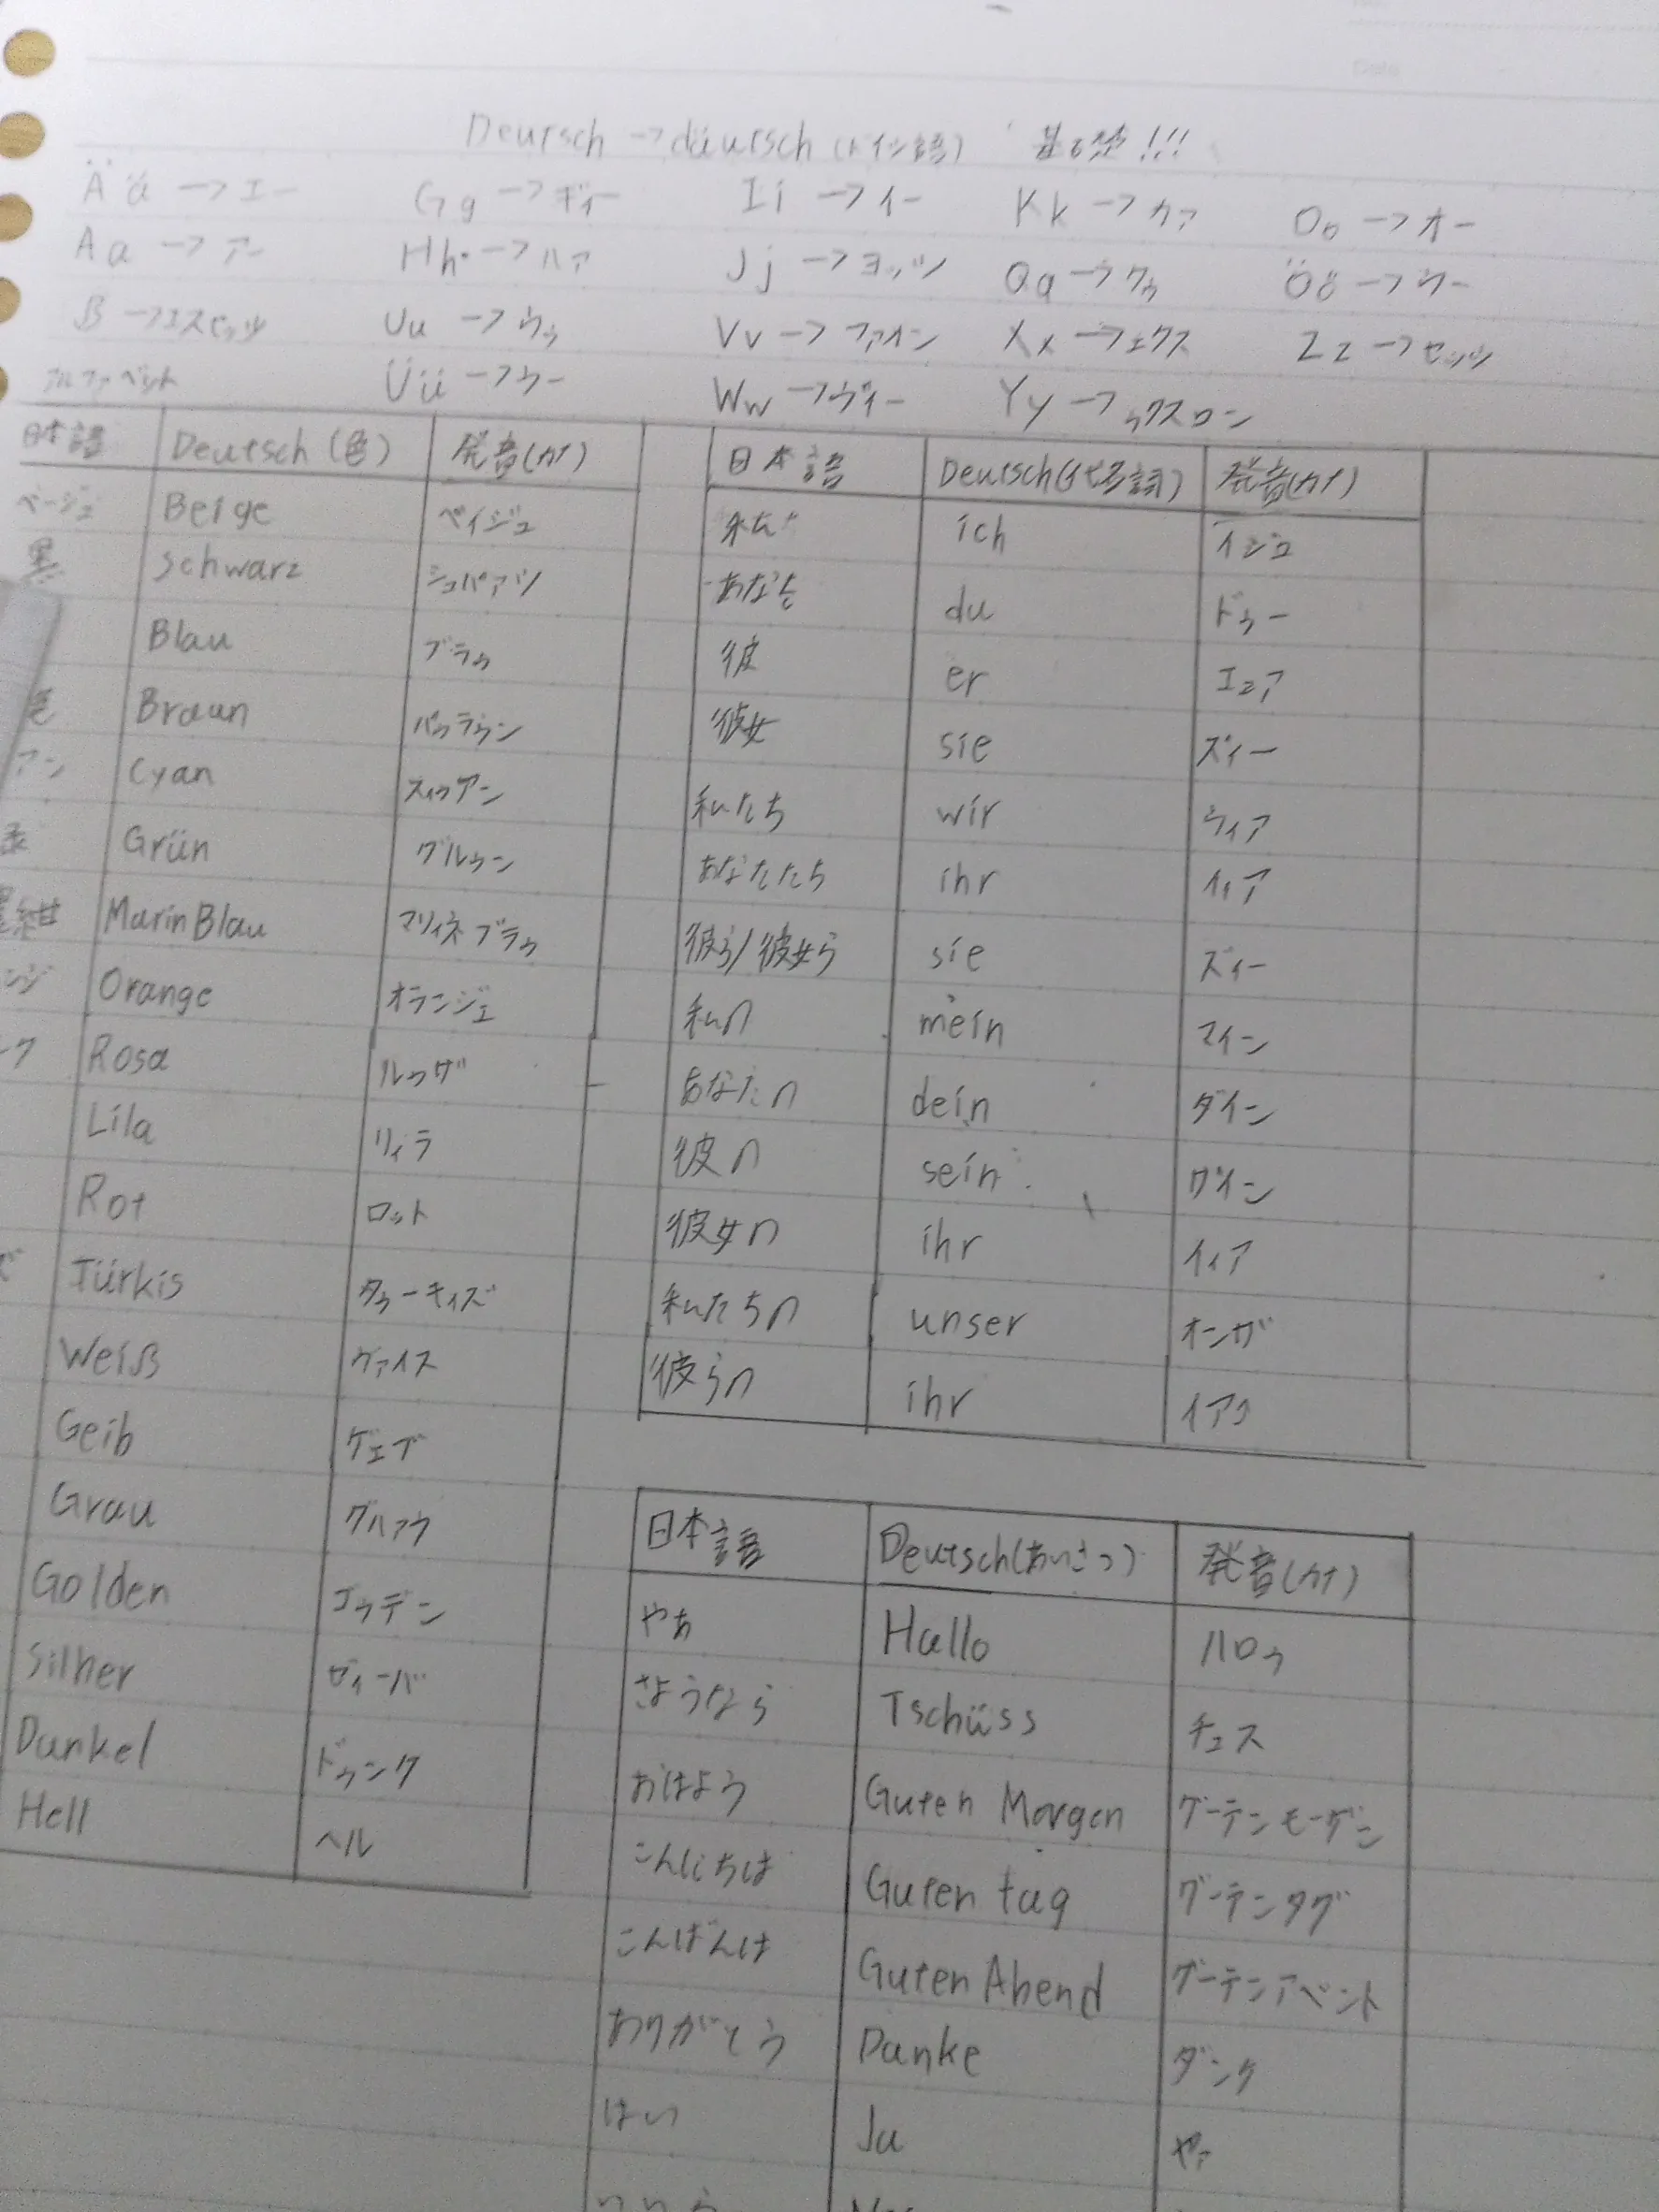 Deutsch → däutsch (ドイツ語) 基礎!!!
Ää → エー Gg → ギィー Ii → イー Kk → カァ Oo → オー
Aa → アー Hh → ハァ Jj → ヨッツ Qq → クゥ Öö → ウー
ß → エスセッツ Uu → ウゥ Vv → ファオン Xx → エクス Zz → セッツ
アルファベット Üü → ウー Ww → ヴィー Yy → ゥクスロン
日本語 Deutsch (色) 発音(カナ)
ベージュ Beige ベイジュ
黒 Schwarz シュバァツ
Blau ブラゥ
色 Braun バゥラウン
アン Cyan スィゥアン
緑 Grün グルゥン
紺 Marin Blau マリィネブラゥ
ンジ Orange オランジェ
ーク Rosa ルゥザ
Lila リィラ
Rot ロット
ズ Türkis タゥーキィズ
Weiß ヴァイス
Geib ゲェブ
Grau グハァウ
Golden ゴゥデン
Silber ゼィーバ
Dunkel ドゥンク
Hell ヘル
日本語 Deutsch(代名詞) 発音(カナ)
私 ich イジュ
あなた du ドゥー
彼 er エェア
彼女 sie ズィー
私たち wir ウィア
あなたたち ihr イィア
彼ら/彼女ら sie ズィー
私の mein マイン
あなたの dein ダイン
彼の sein ザイン
彼女の ihr イィア
私たちの unser オーンガ
彼らの ihr イア
日本語 Deutsch(あいさつ) 発音(カナ)
やぁ Hallo ハロゥ
さようなら Tschüss チュス
おはよう Guten Morgen グーテンモーゲン
こんにちは Guten tag グーテンタグ
こんばんは Guten Abend グーテンアベント
ありがとう Danke ダンク
はい Ja ヤァ